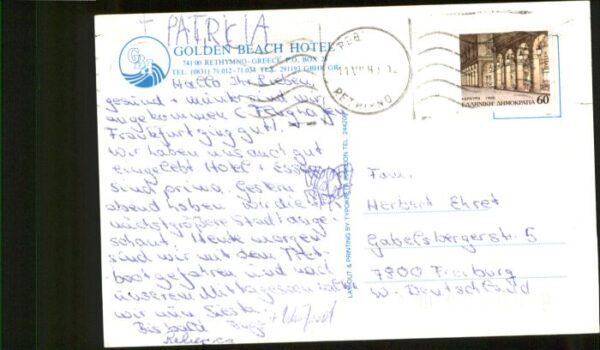 + PATRICIA
GOLDEN BEACH HOTEL
741 00 RETHYMNO - GREECE P.O. BOX 24
TEL. (0831) 71.012 - 71.034 TLX. 291192 GBHR GR
Hallo Ihr Lieben,
gesund + munter sind wir
angekommen
Frankfurt ging gut
Wir haben uns auch gut
eingelebt Hotel + Essen
sind prima. Gestern
abend haben wir die
nächstgrößere Stadt ange-
schaut. Heute morgen
sind wir mit dem Tret-
boot gefahren und nach
unserem Mittagessen
wir nun Siesta.
Bis bald
LAYOUT & PRINTING BY TYPOKRETA
ΡΕΘ
RETHYMNO
ΚΕΡΚΥΡΑ 1988
ΕΛΛΗΝΙΚΗ ΔΗΜΟΚΡΑΤΙΑ 60
Fam.
Herbert Ehret
Gabelsbergerstr. 5
7800 Freiburg
W. Deutschland